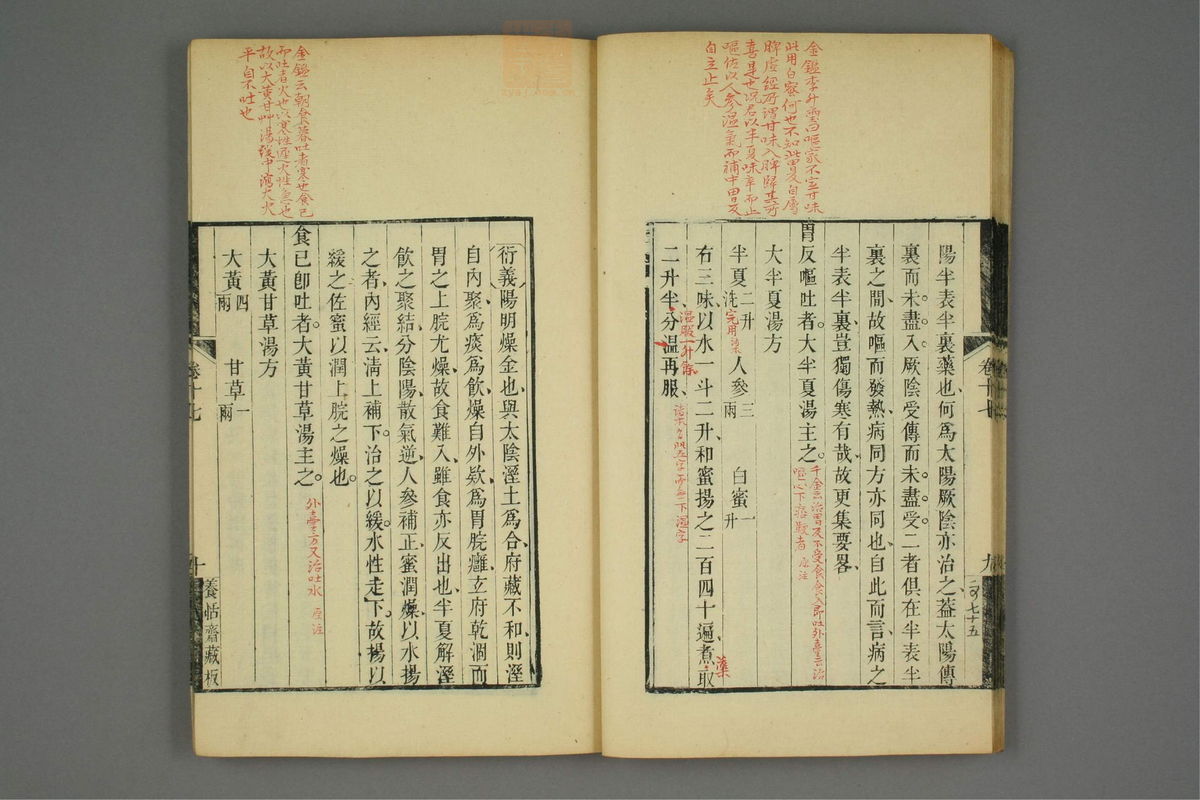 金鑑李升璽曰嘔家不宜甘味
此用白蜜何也不知此胃反自屬
脾虚經所謂甘味入脾歸其所
喜是也況君以半夏味辛而止
嘔佐以人參温氣而補中胃反
自立止矣
陽半表半裏藥也何爲太陽厥陰亦治之葢太陽傳
裏而未盡入厥陰受傳而未盡受二者俱在半表半
裏之閒故嘔而發熱病同方亦同也自此而言病之
半表半裏豈獨傷寒有哉故更集要畧
胃反嘔吐者大半夏湯主之
千金云治胃反不受食食入即吐外臺云治
嘔心下痞鞕者 原注
大半夏湯方
半夏二升洗完用 人參三兩 白蜜一升
右三味以水一斗二升和蜜揚之二百四十遍煮藥取
温服一升餘
二升半分温再服
卷十七
九
二百七十五
金鑑云朝食暮吐者寒也食已
而吐者火也以寒性遲火性急也
故以大黃甘艸湯緩中瀉大火
平自不吐也
衍義陽明燥金也與太陰溼土爲合府藏不和則溼
自內聚爲痰爲飲燥自外欵爲胃脘癰玄府乾涸而
胃之上脘尤燥故食難入雖食亦反出也半夏解溼
飲之聚結分陰陽散氣逆人參補正蜜潤燥以水揚
之者內經云淸上補下治之以緩水性走下故揚以
緩之佐蜜以潤上脘之燥也
食已卽吐者大黃甘草湯主之
外臺方又治吐水 原注
大黃甘草湯方
大黃四兩 甘草一兩
卷十七
十
養恬齋藏板